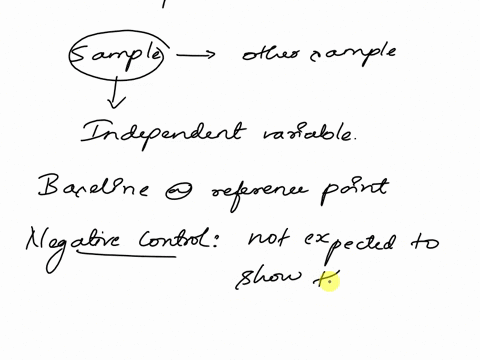 Sample → other sample
↓
Independent variable.
Baseline or reference point
Negative Control: not expected to
show